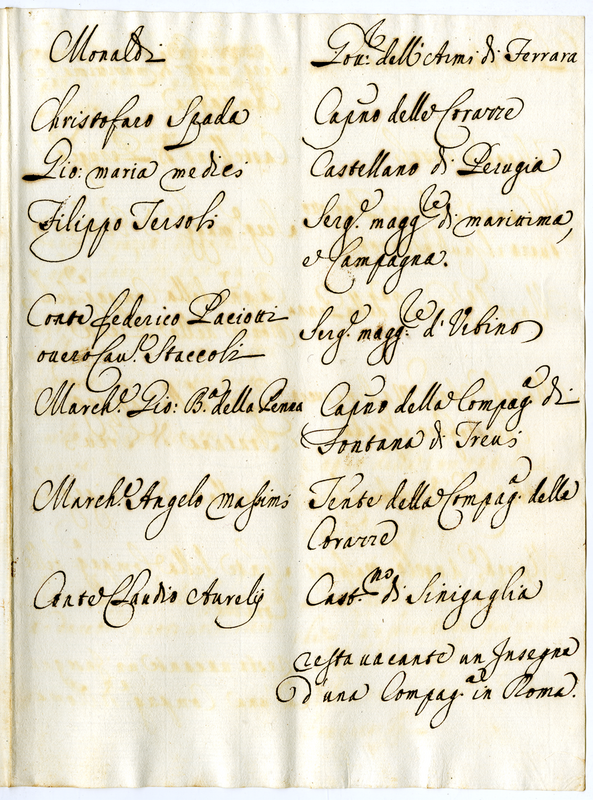 Monaldi
Gou.re dell'Armi di Ferrara
Christofaro Spada
Cap.no delle Corazze
Gio: maria medici
Castellano di Perugia
Filippo Tersoli
Serg.e magg.re di maritima,
e Campagna.
Conte federico Paciotti
ouero Cau.r Staccoli
Serg.e magg.re d'Vrbino
March.e Gio: B.a della Penna
Cap.no della Compag.a di
Fontana di Treui
March.e Angelo massimi
Tente della Compag.a della
Corazze
Conte Claudio Aurelij
Cast.no di Sinigaglia
resta uacante un Insegna
d'una Compag.a in Roma.